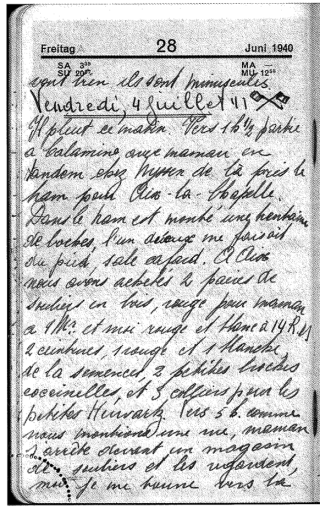 Freitag 28 Juni 1940
SA 3⁵⁰ MA —
SU 20²⁷ MU 12⁵⁰
vont bien ils sont minuscules
Vendredi, 4 Juillet 41
Il pleut ce matin. Vers 1 h ½ partie
à Calamine avec maman en
tandem chez Nyssen de là pris le
tram pour Aix-la-Chapelle.
Dans le tram est monté une trentaine
de boches, l'un d'eux me faisait
du pied, sale crapaud. A Aix
nous avons achetés 2 paires de
souliers en bois, rouge pour maman
à 9 Mk et moi rouge et blanc à 14 R.M
2 ceintures, 1 rouge et 1 blanche,
de la semences, 2 petites broches
coccinelles, et 3 colliers pour les
petites Vers 5 h. comme
nous montions une rue, maman
s'arrête devant un magasin
de souliers et les regardent,
moi je me tourne vers la